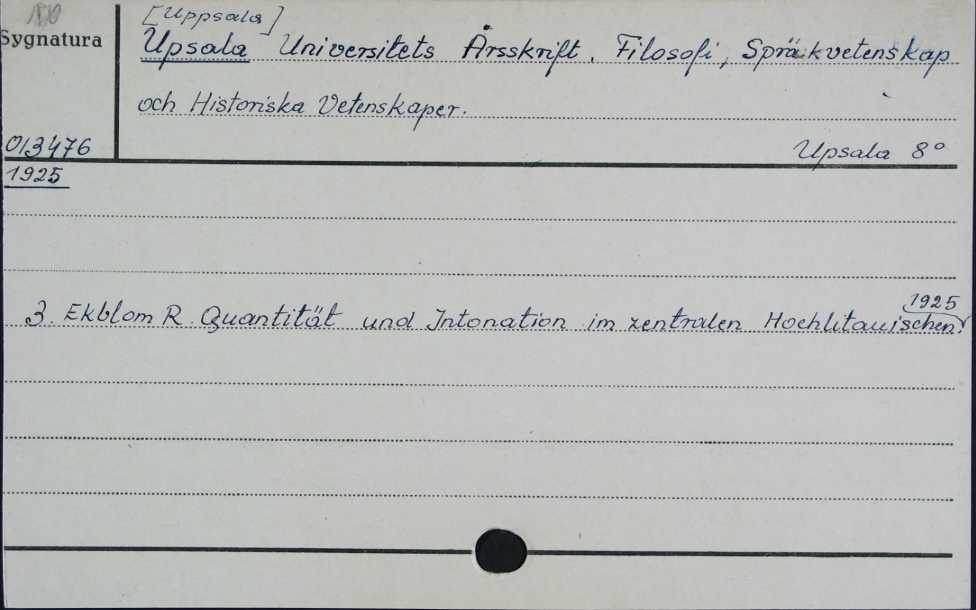 [Uppsala]
Sygnatura
Upsala Universitets Årsskrift. Filosofi, Språkvetenskap
och Historiska Vetenskaper.
013476
Upsala 8°
1925
1925
3. Ekblom R. Quantität und Intonation im zentralen Hochlitauischen.